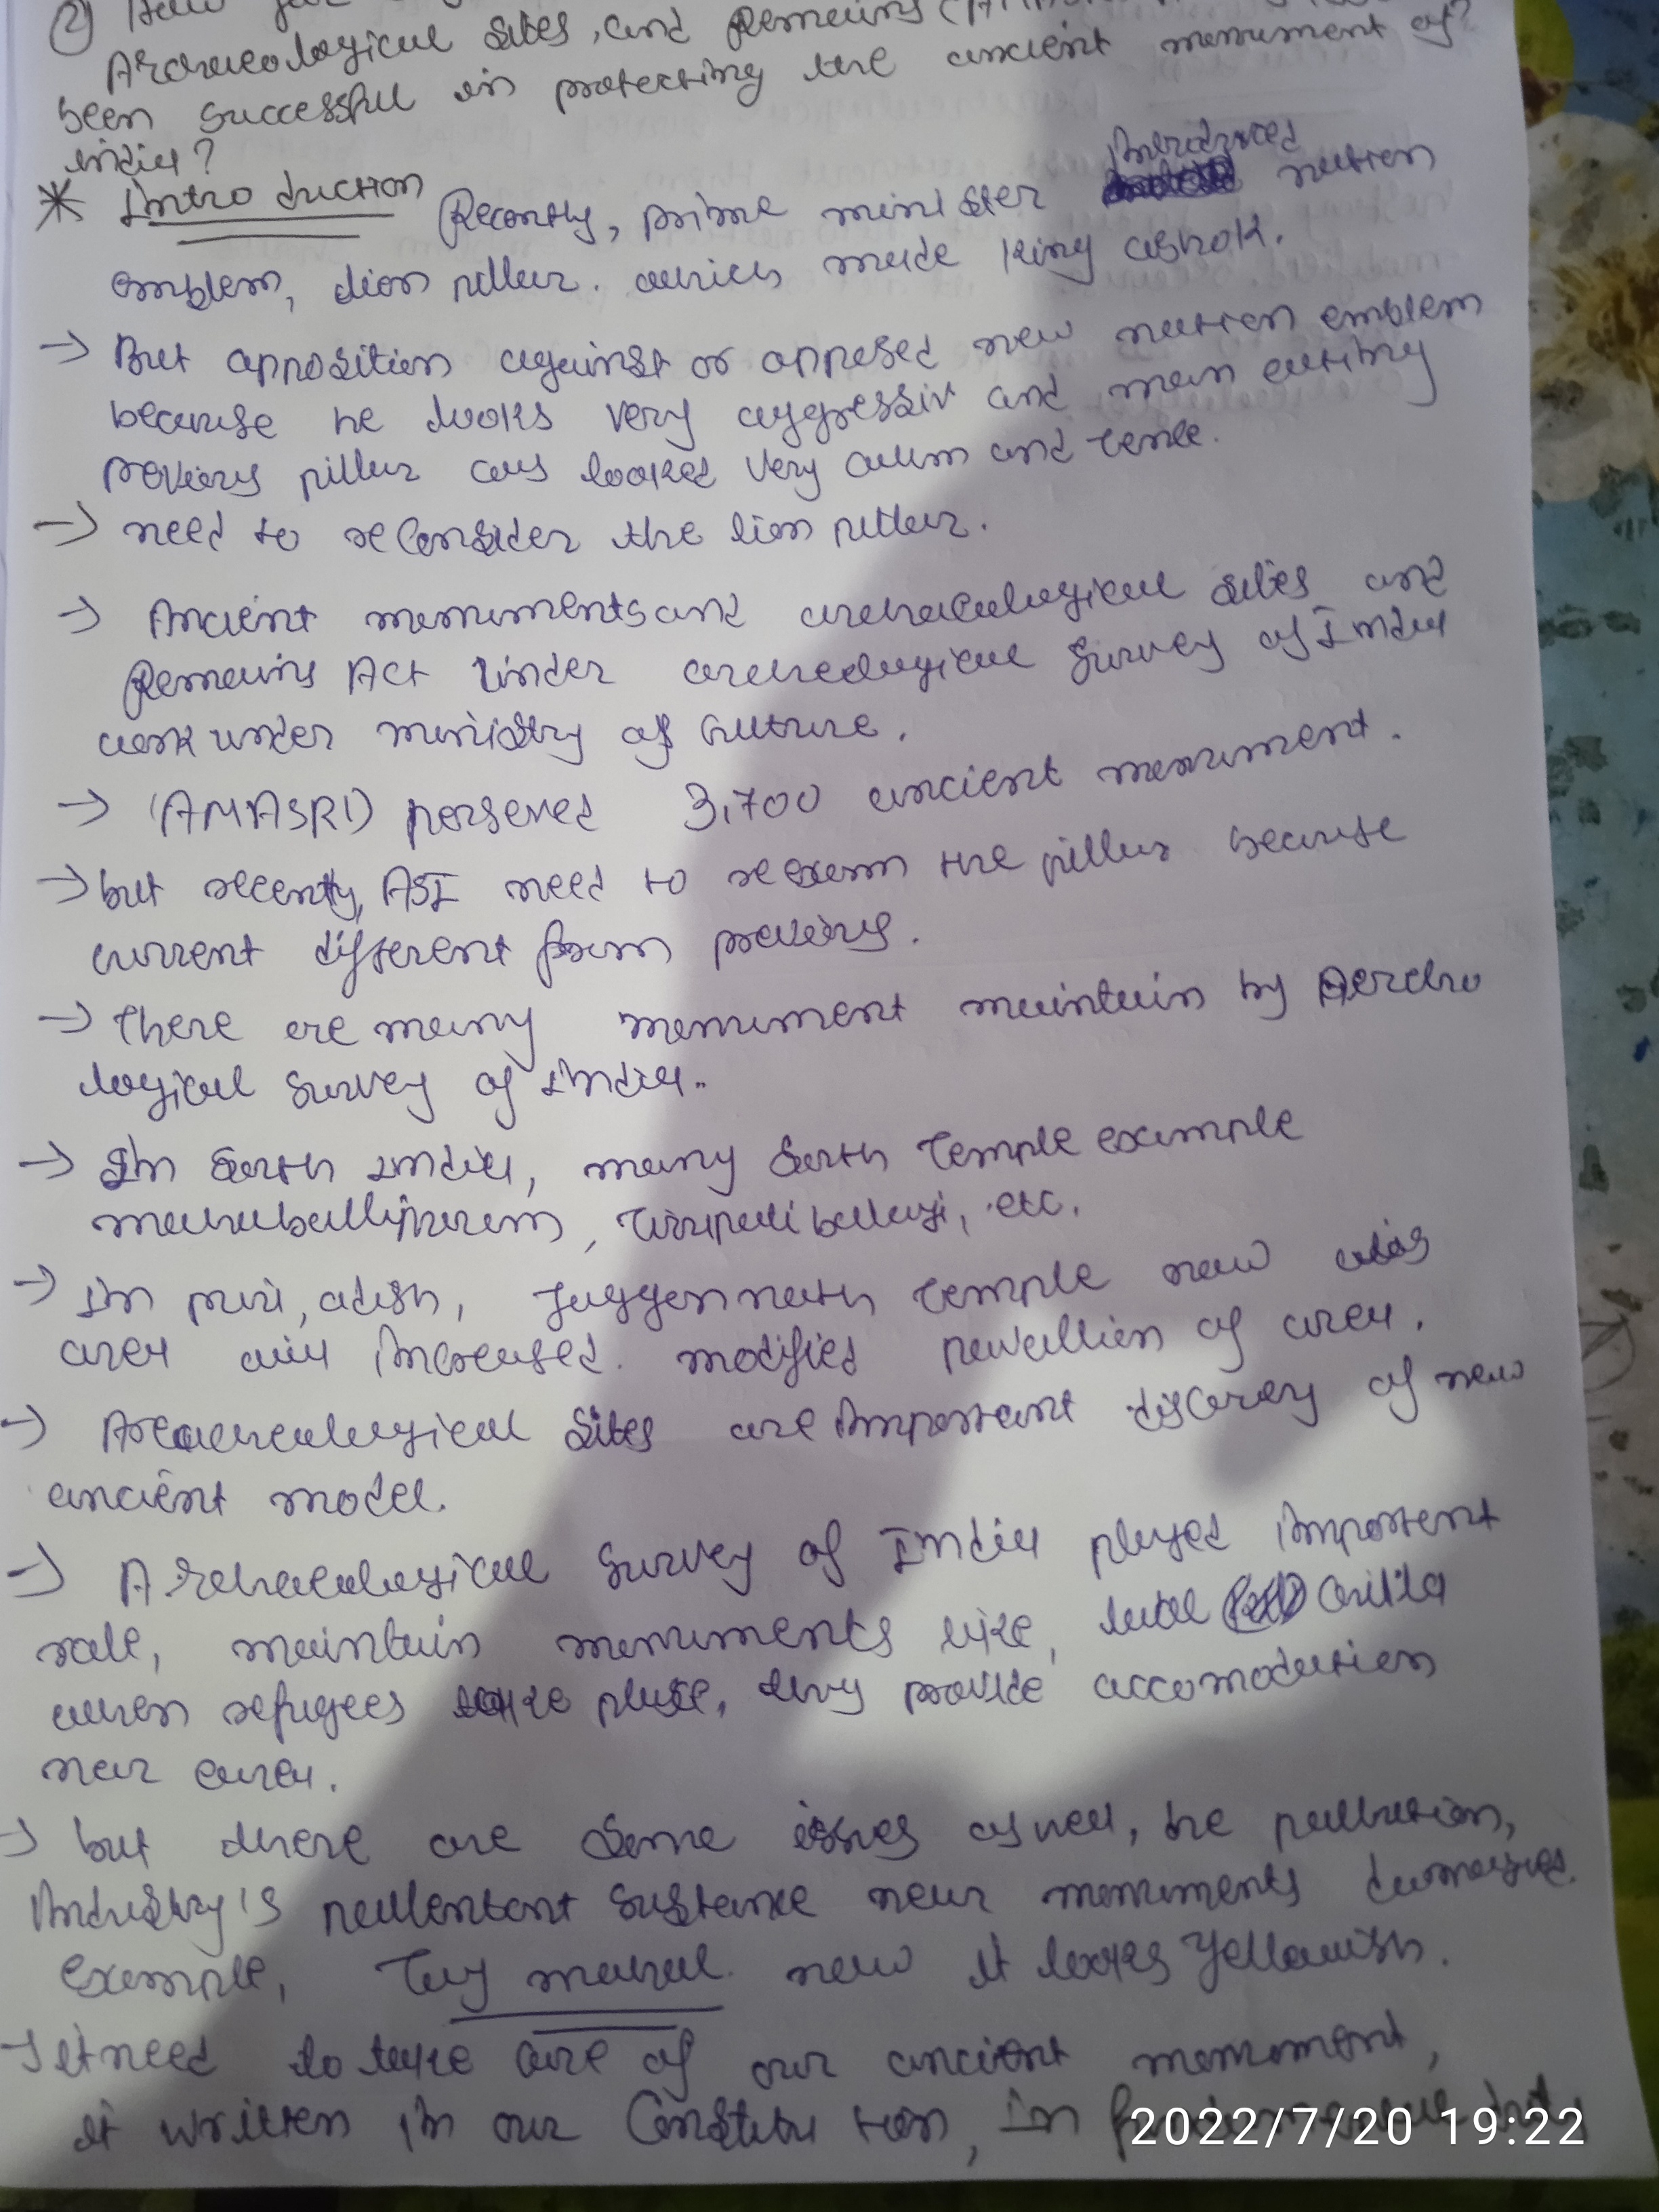 ② How
Archaeological sites, and Remains
been successful in protecting the ancient monument of
india?
* Introduction Recently, prime minister introduced nation
emblem, lion pillar. which made king ashok.
→ But opposition against or opposed new nation emblem
because he looks very aggressiv and man eating
previous pillar was looked very calm and
→ need to reConsider the lion pillar.
→ Ancient monuments and archaeological sites and
Remains Act under archeological Survey of India
work under ministry of Culture.
→ (AMASR) perserved 3,700 ancient monument.
→ but recently, ASI need to reexam the pillar because
current different from previous.
→ There are many monument maintain by Archo
logical Survey of India..
→ In South India, many South Temple example
mahaballipuram, Tirupati balaji, etc.
→ In puri, odish, Jaggannath Temple new
area will increased. modified pavallion of area.
→ Archaeological Sites are important discovery of new
ancient model.
→ Archaeological Survey of India played important
role, maintain monuments like, lal Quilla
when refugees take place, they provide accomodation
near area.
→ but there are some issues, be pollution,
industry's pollentant sustance near monuments
example, Taj mahal. now it looks yellowish.
→ it need to take care of our ancient monument,
it written in our Constitution, In
2022/7/20 19:22